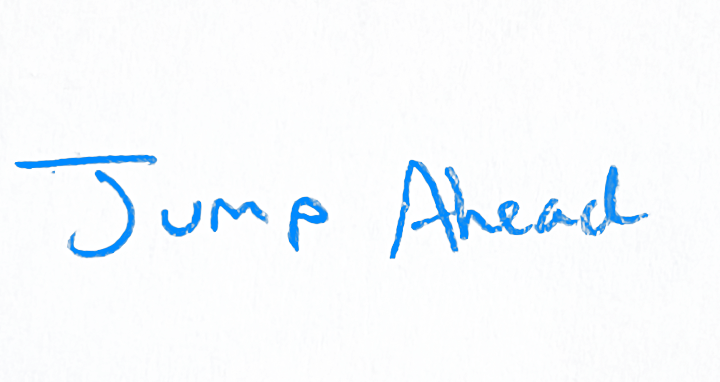 Jump Ahead